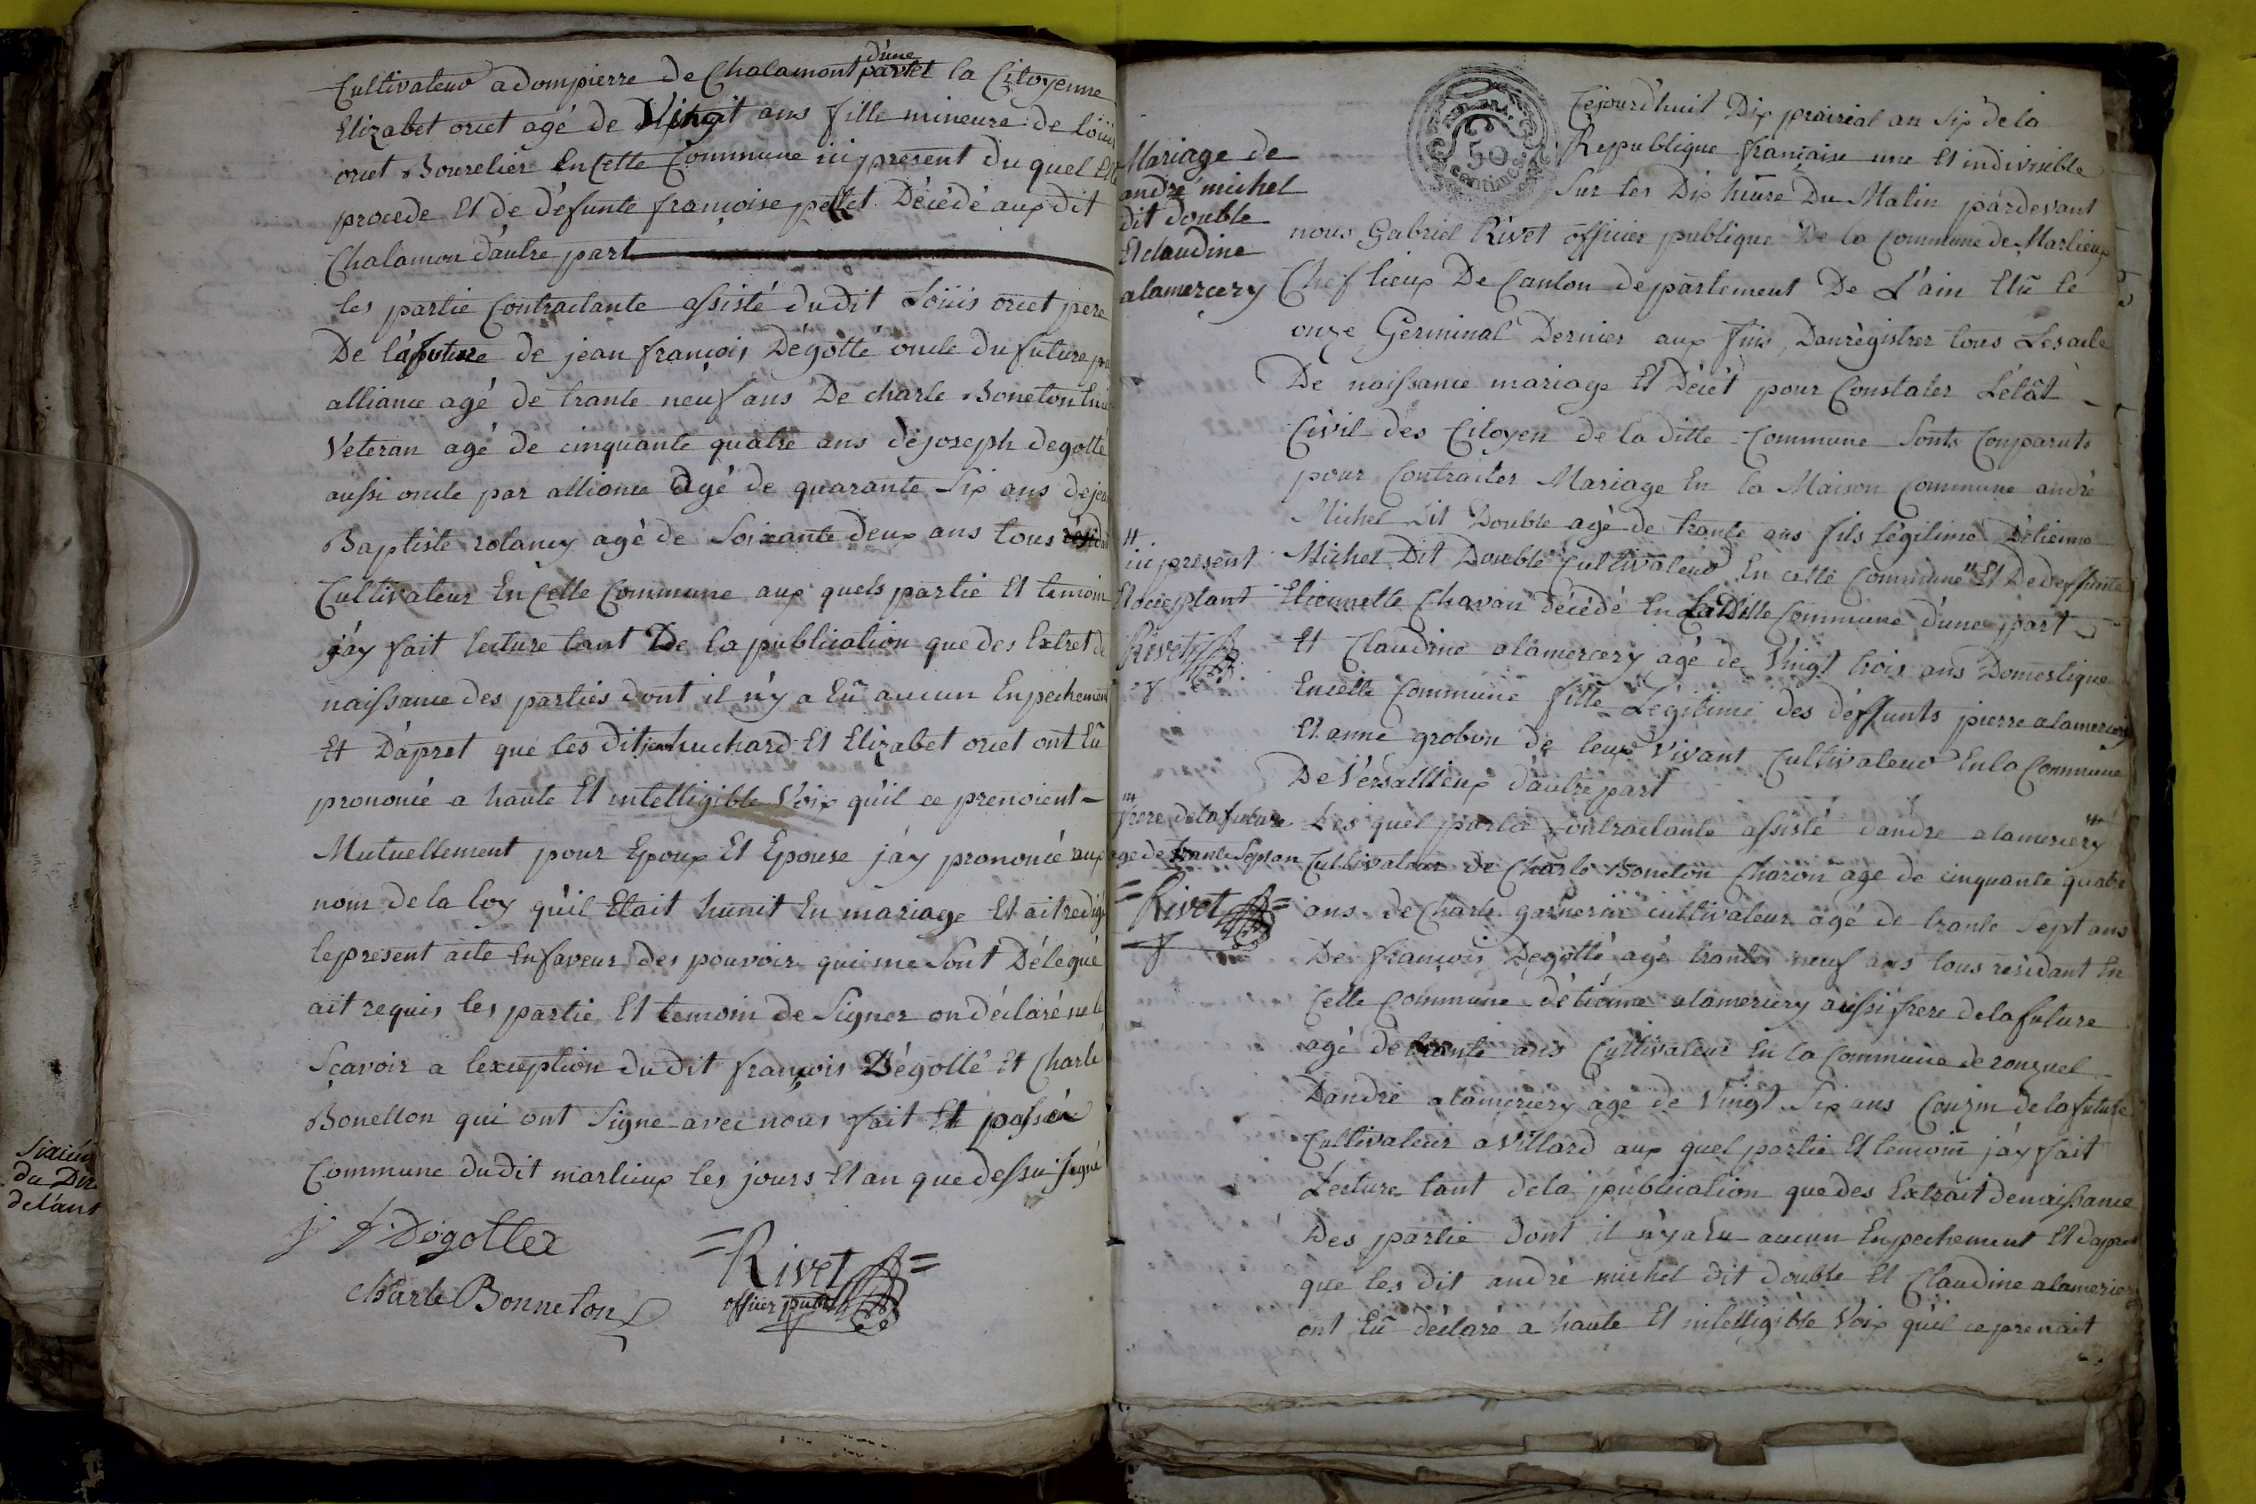 Cultivateur a dompierre de Chalamont d'une part et la Citoyenne
Elizabet oriet agé de Vingt ans fille mineure de Loüis
oriet Bourelier En Cette Commune ici present du quel Elle
procede Et de défunte françoise pellet Décédé aux dit
Chalamon d'autre part
les partie Contractante assisté du dit Loüis oriet pere
De la future de jean françois Dégotté oncle du future par
alliance agé de trante neuf ans De charle Boneton
Veteran agé de cinquante quatre ans de joseph degotté
aussi oncle par alliance agé de quarante Six ans de jean
Baptiste rolancy agé de Soixante deux ans tous résidant
Cultivateur En Cette Commune aux quels partie Et temoin
j'ay fait lecture tant De la publication que des Extret de
naissance des parties dont il n'y a Eü aucun Enpechement
Et D'apret que les Dit jean huchard Et Elizabet oriet ont Eü
prononcé a haute Et intelligible Voix qu'il ce prenoient
Mutuellement pour Epoux Et Epouse j'ay prononcé aux
nom de la loy qu'il Etait hunit En mariage Et ait redigé
le present acte En faveur des pouvoir qui me Sont Délegué
ait requis les partie Et temoin de Signer on déclaré ne le
Sçavoir a l'exception du dit françois Dégotté Et Charle
Bonetton qui ont Signe avec nous fait Et passé En
Commune du dit marlieux les jours Et an que dessu Signé
j f Dégottex
Charle Bonneton
Rivet
officier public
Mariage de
andré michel
dit double
Et claudine
alamercery
50
centimes
Cejourd'huit Dix prairial an Six de la
Republique française une Et indivisible
Sur les Dix heure Du Matin pardevant
nous Gabriel Rivet officier publique De la Commune de Marlieux
Chef lieux De Canton departement De L'ain Elü le
onze Germinal Dernier aux fins D'anregistrer tous Les acte
De naissance mariage Et Décét pour Constater L'état
Civil des Citoyen de la ditte Commune Sonts Comparuts
pour Contracter Mariage En la Maison Commune andré
Michel Dit Double agé de trante ans fils légitime D'etienne
Michel Dit Double Cultivateur En cette Commune " Et De deffunte
Etiennette Chavan décédé En La Ditte Commune d'une part
Et Claudine alamercery agé de Vingt trois ans Domestique
En cette Commune fille Légitime des déffunts pierre alamercery
Et anne grobon de leur Vivant Cultivateur En la Commune
De Versaillieux d'autre part
"
ici present
Et acceptant
Rivet
Les quel partie Contractante assisté d'andre alamercery
Cultivateur de Charle Boneton Charon age de cinquante quatre
ans de Charle garnerin cultivateur agé de trante Sept ans
De françois Degotté agé trante neuf ans tous residant En
Cette Commune d'étienne alamercery aussi frere de la future
agé de trante ans Cultivateur En la Commune de ronzuel
D'andré alamercery age de Vingt Six ans Couzin de la future
Cultivateur a Villard aux quel partie Et temoin j'ay fait
Lecture tant de la publication que des Extrait de naissance
Des partie dont il n'y a Eu aucun Enpechement Et d'apret
que les dit andré michel dit double Et Claudine alamercery
ont Eü déclaré a haute Et intelligible Voix qu'il ce prenait
frere de la future
agé de trante Sept an
Rivet